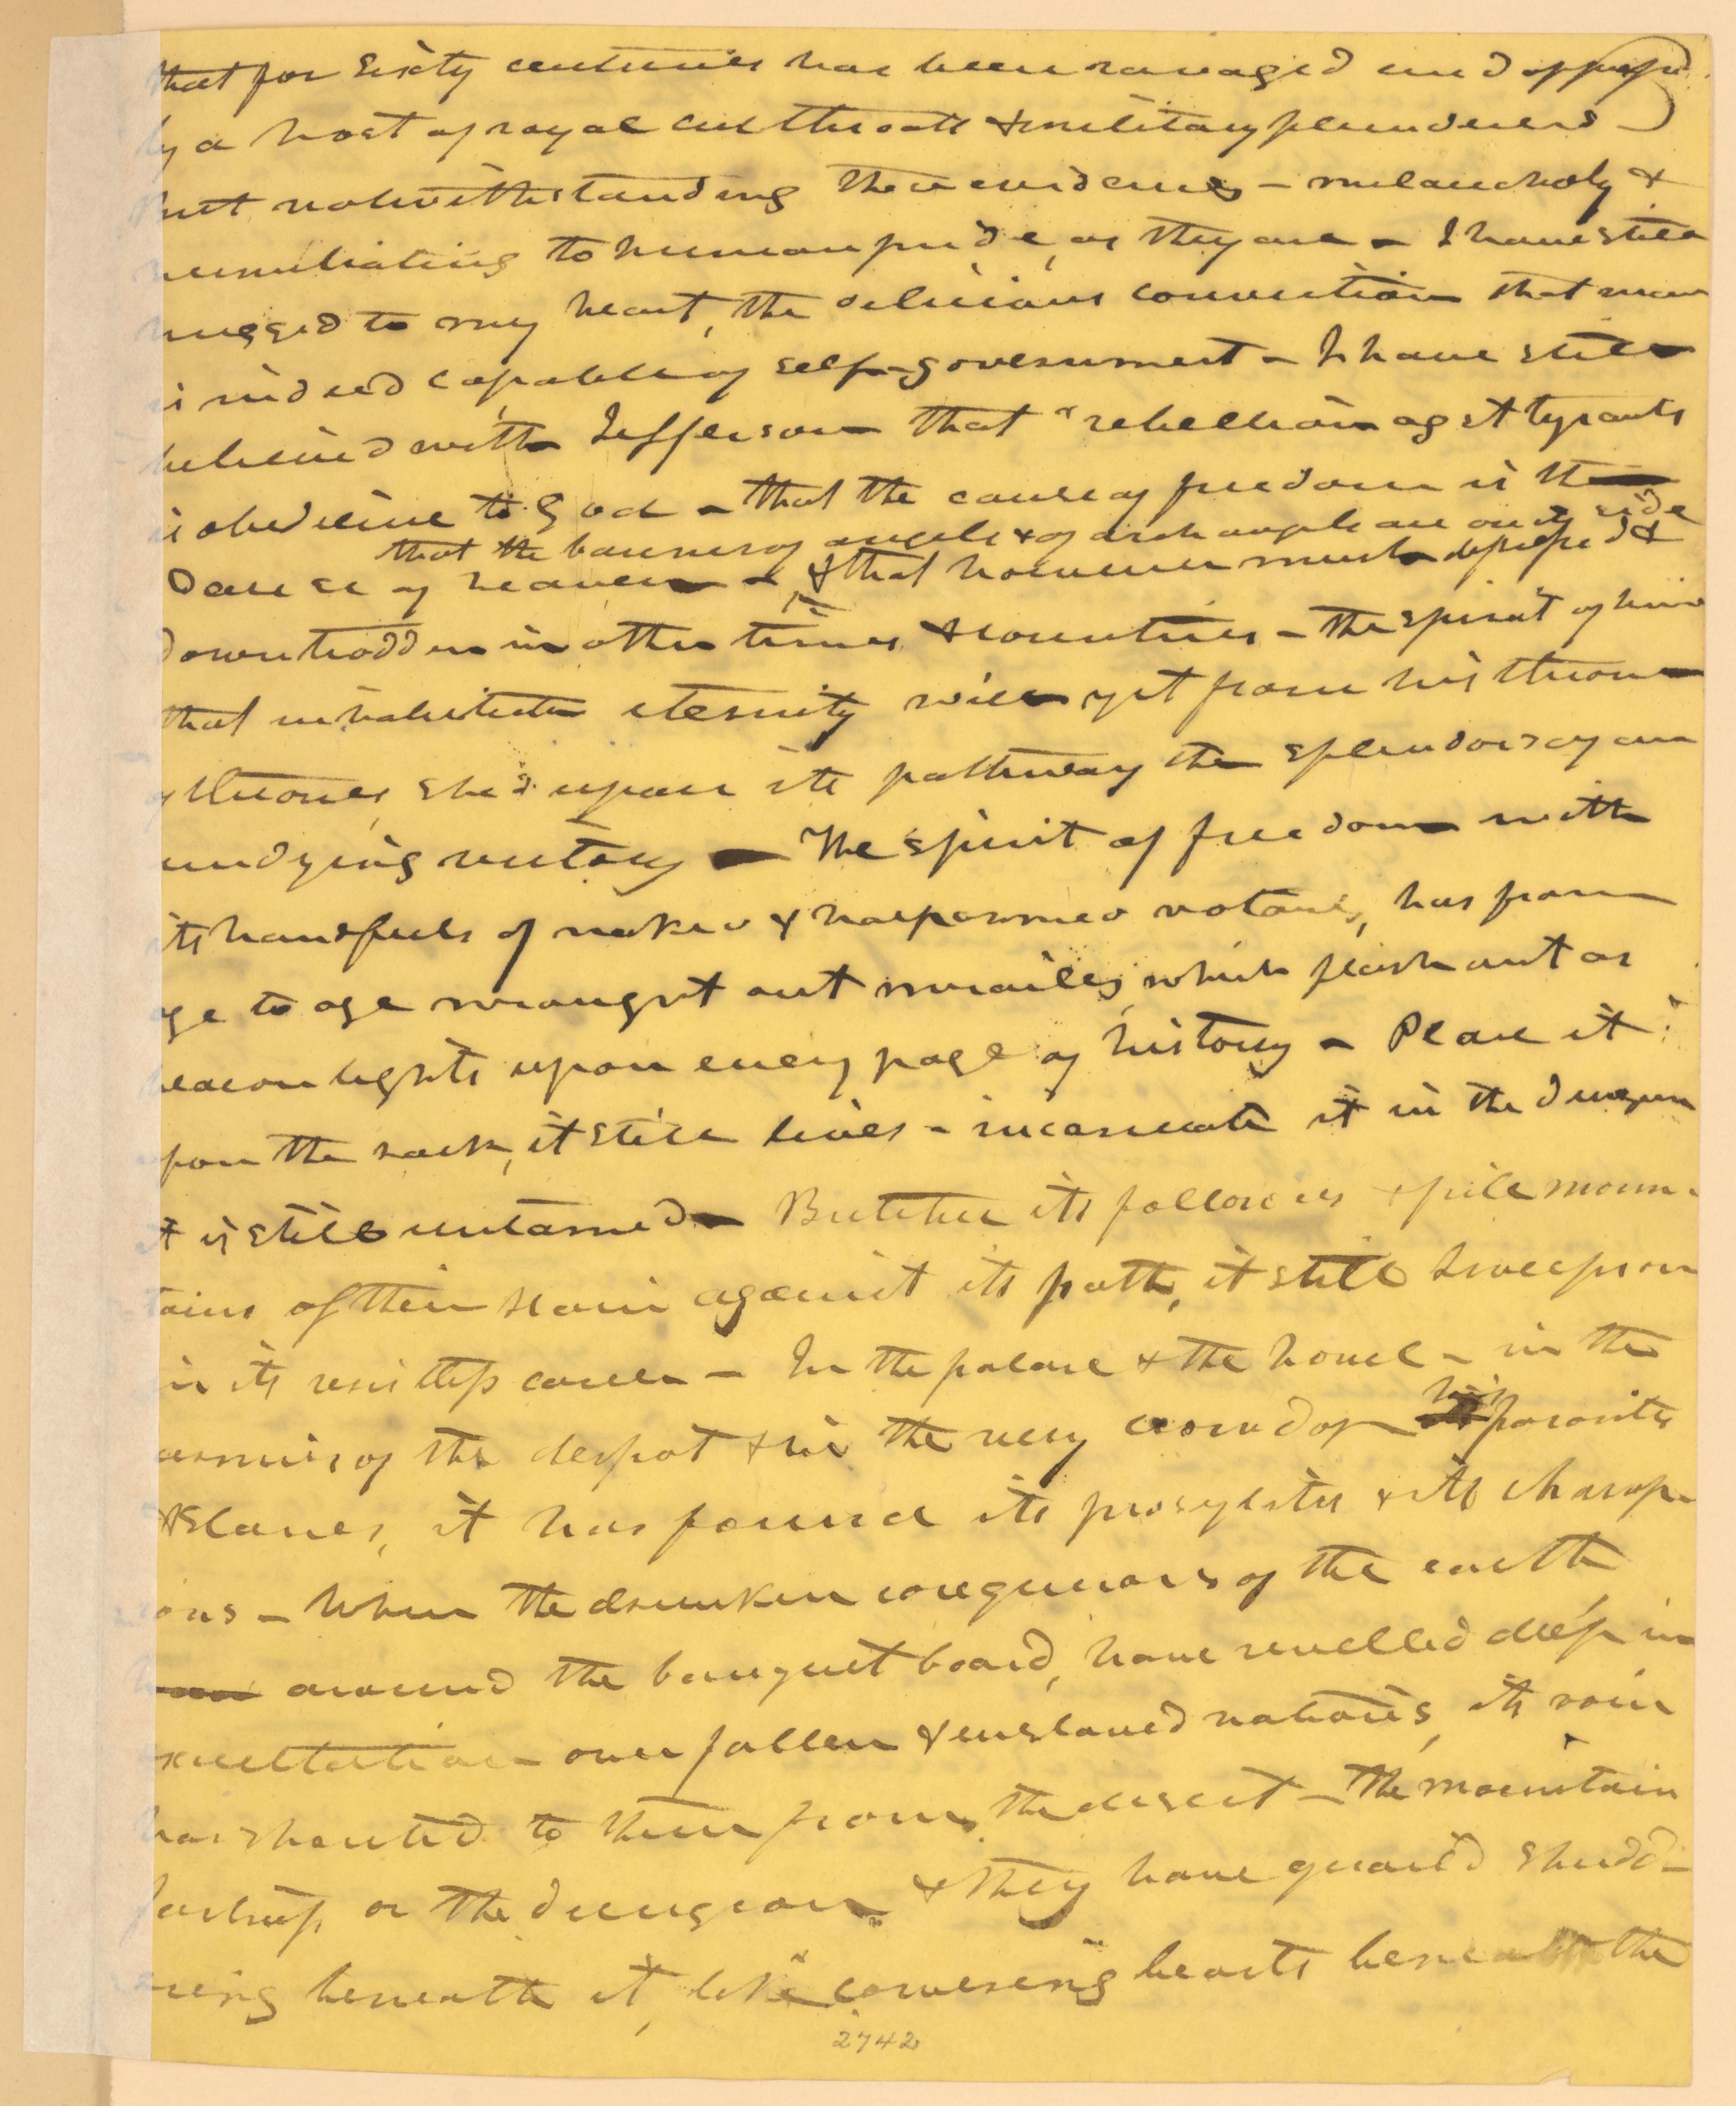 that for sixty centuries has been ravaged and oppressed
by a host of royal cutthroats & military plunderers -
But notwithstanding these evidences - melancholy &
humiliating to human pride, as they are - I have still
hugged to my heart, the delicious conviction that man
is indeed capable of self-government - I have still
believed with Jefferson that "rebellion agst tyrants
is obedience to God - that the cause of freedom is the
that the banners of angels & of arch angels are on its side
cause of heaven - & that however much depressed &
downtrodden in other times & countries - the spirit of him
that inhabiteth eternity will yet from his throne
of thrones, shed upon its pathway the splendors of an
undying victory - The spirit of freedom with
its handfuls of naked & half armed votaries, has from
age to age wrought out miracles, which flash out as
beacon lights upon every page of history - Place it
upon the rack, it still lives - incarcerate it in the dungeon
it is still untamed - Butcher its followers & pile moun-
tains of their slain against its path, it still sweeps on
in its resistless career - In the palace & the hovel - in the
armies of the despot & in the very crowd of his parasites
& slaves, it has found its proselytes & its champ-
ions - When the drunken conquerors of the earth
around the banquet board, have revelled deep in
exultation over fallen & enslaved nations, its voice
has shouted to them from the desert - the mountain
fastness or the dungeon & they have quail'd shudd-
ering beneath it, like cowering beasts beneath the
2742